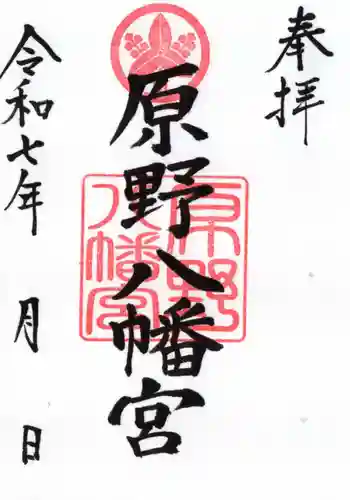 奉拝
原野八幡宮
原野
八幡宮
令和七年 月 日